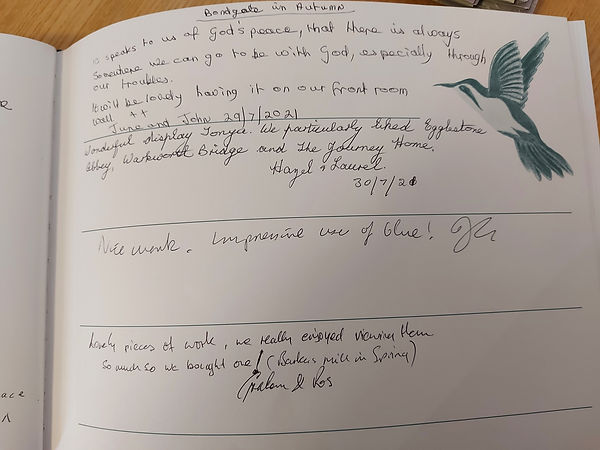 Bondgate in Autumn
speaks to us of God's peace, that there is always
Somewhere we can go to be with God, especially through
our troubles.
It will be lovely having it on our front room
wall ++
June and John 29/7/2021
Wonderful display Tonya. We particularly liked Egglestone
Abbey, Warkworth Bridge and The Journey Home.
Hazel & Laurel.
30/7/21
Nice work. Impressive use of blue!
Lovely pieces of work, we really enjoyed viewing them
so much so we bought one! (Barkers mill in Spring)
Graham & Ros
ace